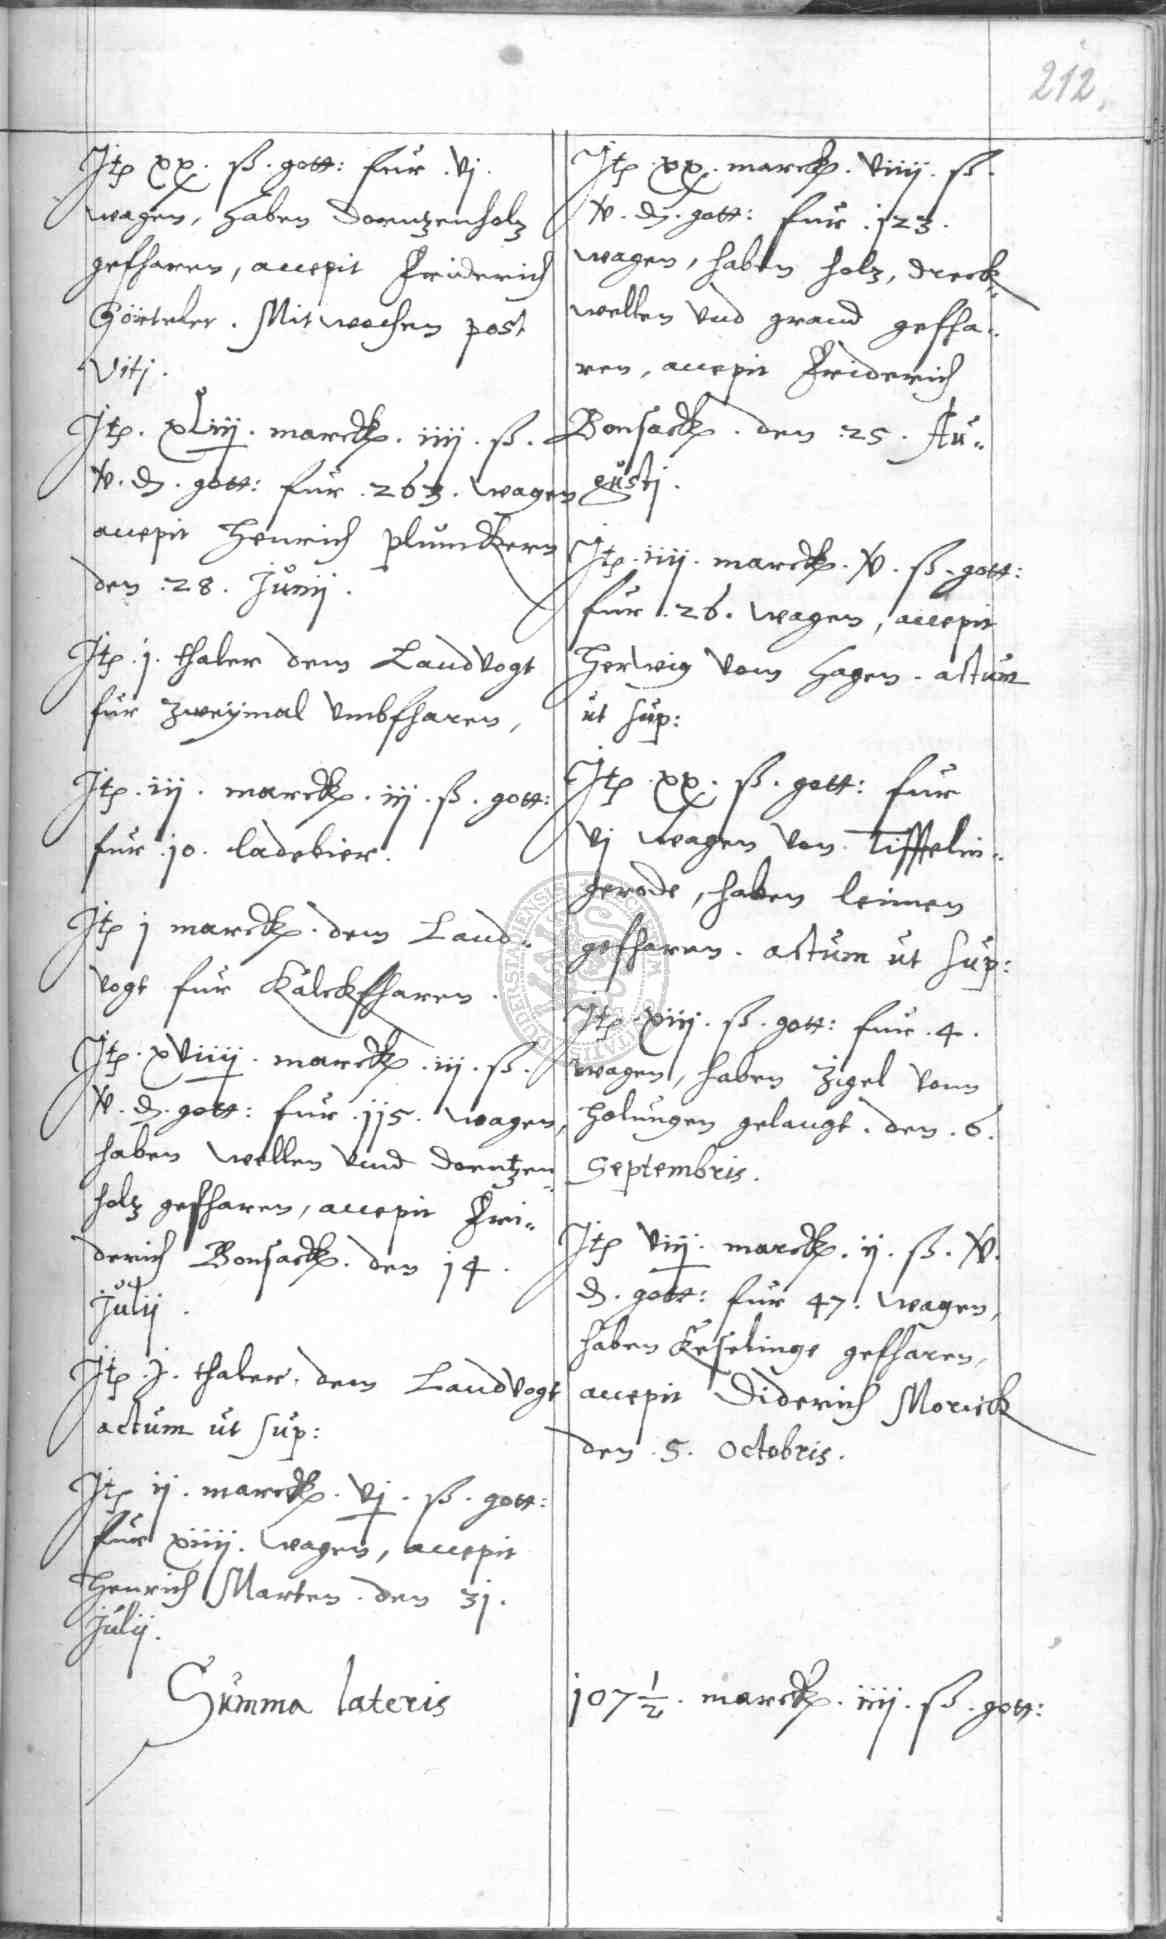 212.
Itp xx. ß. gott: fur .vj.
wagen, haben Dorntzenholz
gefharen, accepit Friderich
Görteler. Mitwochen post
Viti.
Itp. xLiij. marckp. iiij. ß.
v. d. gott: fur .263. wagen
accepit Henrich plumckern
den .28. Junij.
Itp .j. thaler dem Landvogt
fur zweymal umbfharen,
Itp .iij. marckp. iij. ß. gott:
fur .10. ladebier.
Itp j marckp. dem Land„
vogt fur Kalckfharen.
Itp. xviiij. marckp. iij. ß.
v. d. gott: fur .115. wagen,
haben wellen und dorntzen„
holz gefharen, accepit Fri„
derich Bonsackp. den 14.
Julij.
Itp .j. thaler. dem Landvogt
actum ut sup:
Itp ij. marckp. vj. ß. gott:
fur xiiij. wagen, accepit
Henrich Marten. den 31.
Julij.
Itp .xx. marckp. viiij. ß.
v. d. gott: fur .123.
wagen, haben holz, dreck„
wellen und grand gefha„
ren, accepit Friderich
Bonsackp. den .25. Au„
gusti.
Itp .iiij. marckp. v. ß. gott:
fur .26. wagen, accepit
Herwig vom Hagen. actum
ut sup:
Itp .xx. ß. gott: fur
vj wagen von Tiffelin„
gerode, haben leimen
gefharen. actum ut sup:
Itp .xiij. ß. gott: fur .4.
wagen, haben zigel vonn
Holungen gelangt. den .6.
Septembris.
Itp viij. marckp. ij. ß. v.
d. gott: fur 47. wagen,
haben Keselinge gefharen,
accepit Diderich Morick
den .5. Octobris.
Summa lateris 107 1/2. marckp. iiij. ß. gott: